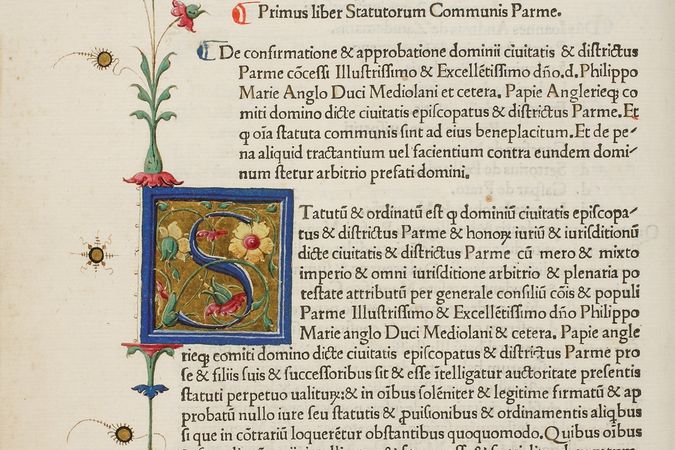 Primus liber Statutorum Communis Parme.
De confirmatione & approbatione dominii ciuitatis & districtus
Parme cōcessi Illustrissimo & Excellētissimo dño.d. Philippo
Marie Anglo Duci Mediolani et cetera. Papie Anglerieqȝ co
miti domino dicte ciuitatis episcopatus & districtus Parme. Et
ꝙ oīa statuta communis sint ad eius beneplacitum. Et de pe-
na aliquid tractantium uel facientium contra eundem domi-
num stetur arbitrio prefati domini.
STatutū & ordinatū est ꝙ dominiū ciuitatis episcopa-
tus & districtus Parme & honoꝝ iuriū & iurisditionū
dicte ciuitatis & districtus Parme cū mero & mixto
imperio & omni iurisditione arbitrio & plenaria po
testate attributū per generale consiliū cōis & populi
Parme Illustrissimo & Excellētissimo dño Philippo
Marie anglo Duci Mediolani & cetera. Papie angle
rieqȝ comiti domino dicte ciuitatis episcopatus & districtus Parme pro
se & filiis suis & successoribus sit & esse ītelligatur auctoritate presentis
statuti perpetuo ualituꝝ:& in oībus solēniter & legitime firmatū & ap
probatū nullo iure seu statutis & ꝓuisionibus & ordinamentis aliqbus
si que in cōtrariū loquerētur obstantibus quoquomodo. Quibus oībus